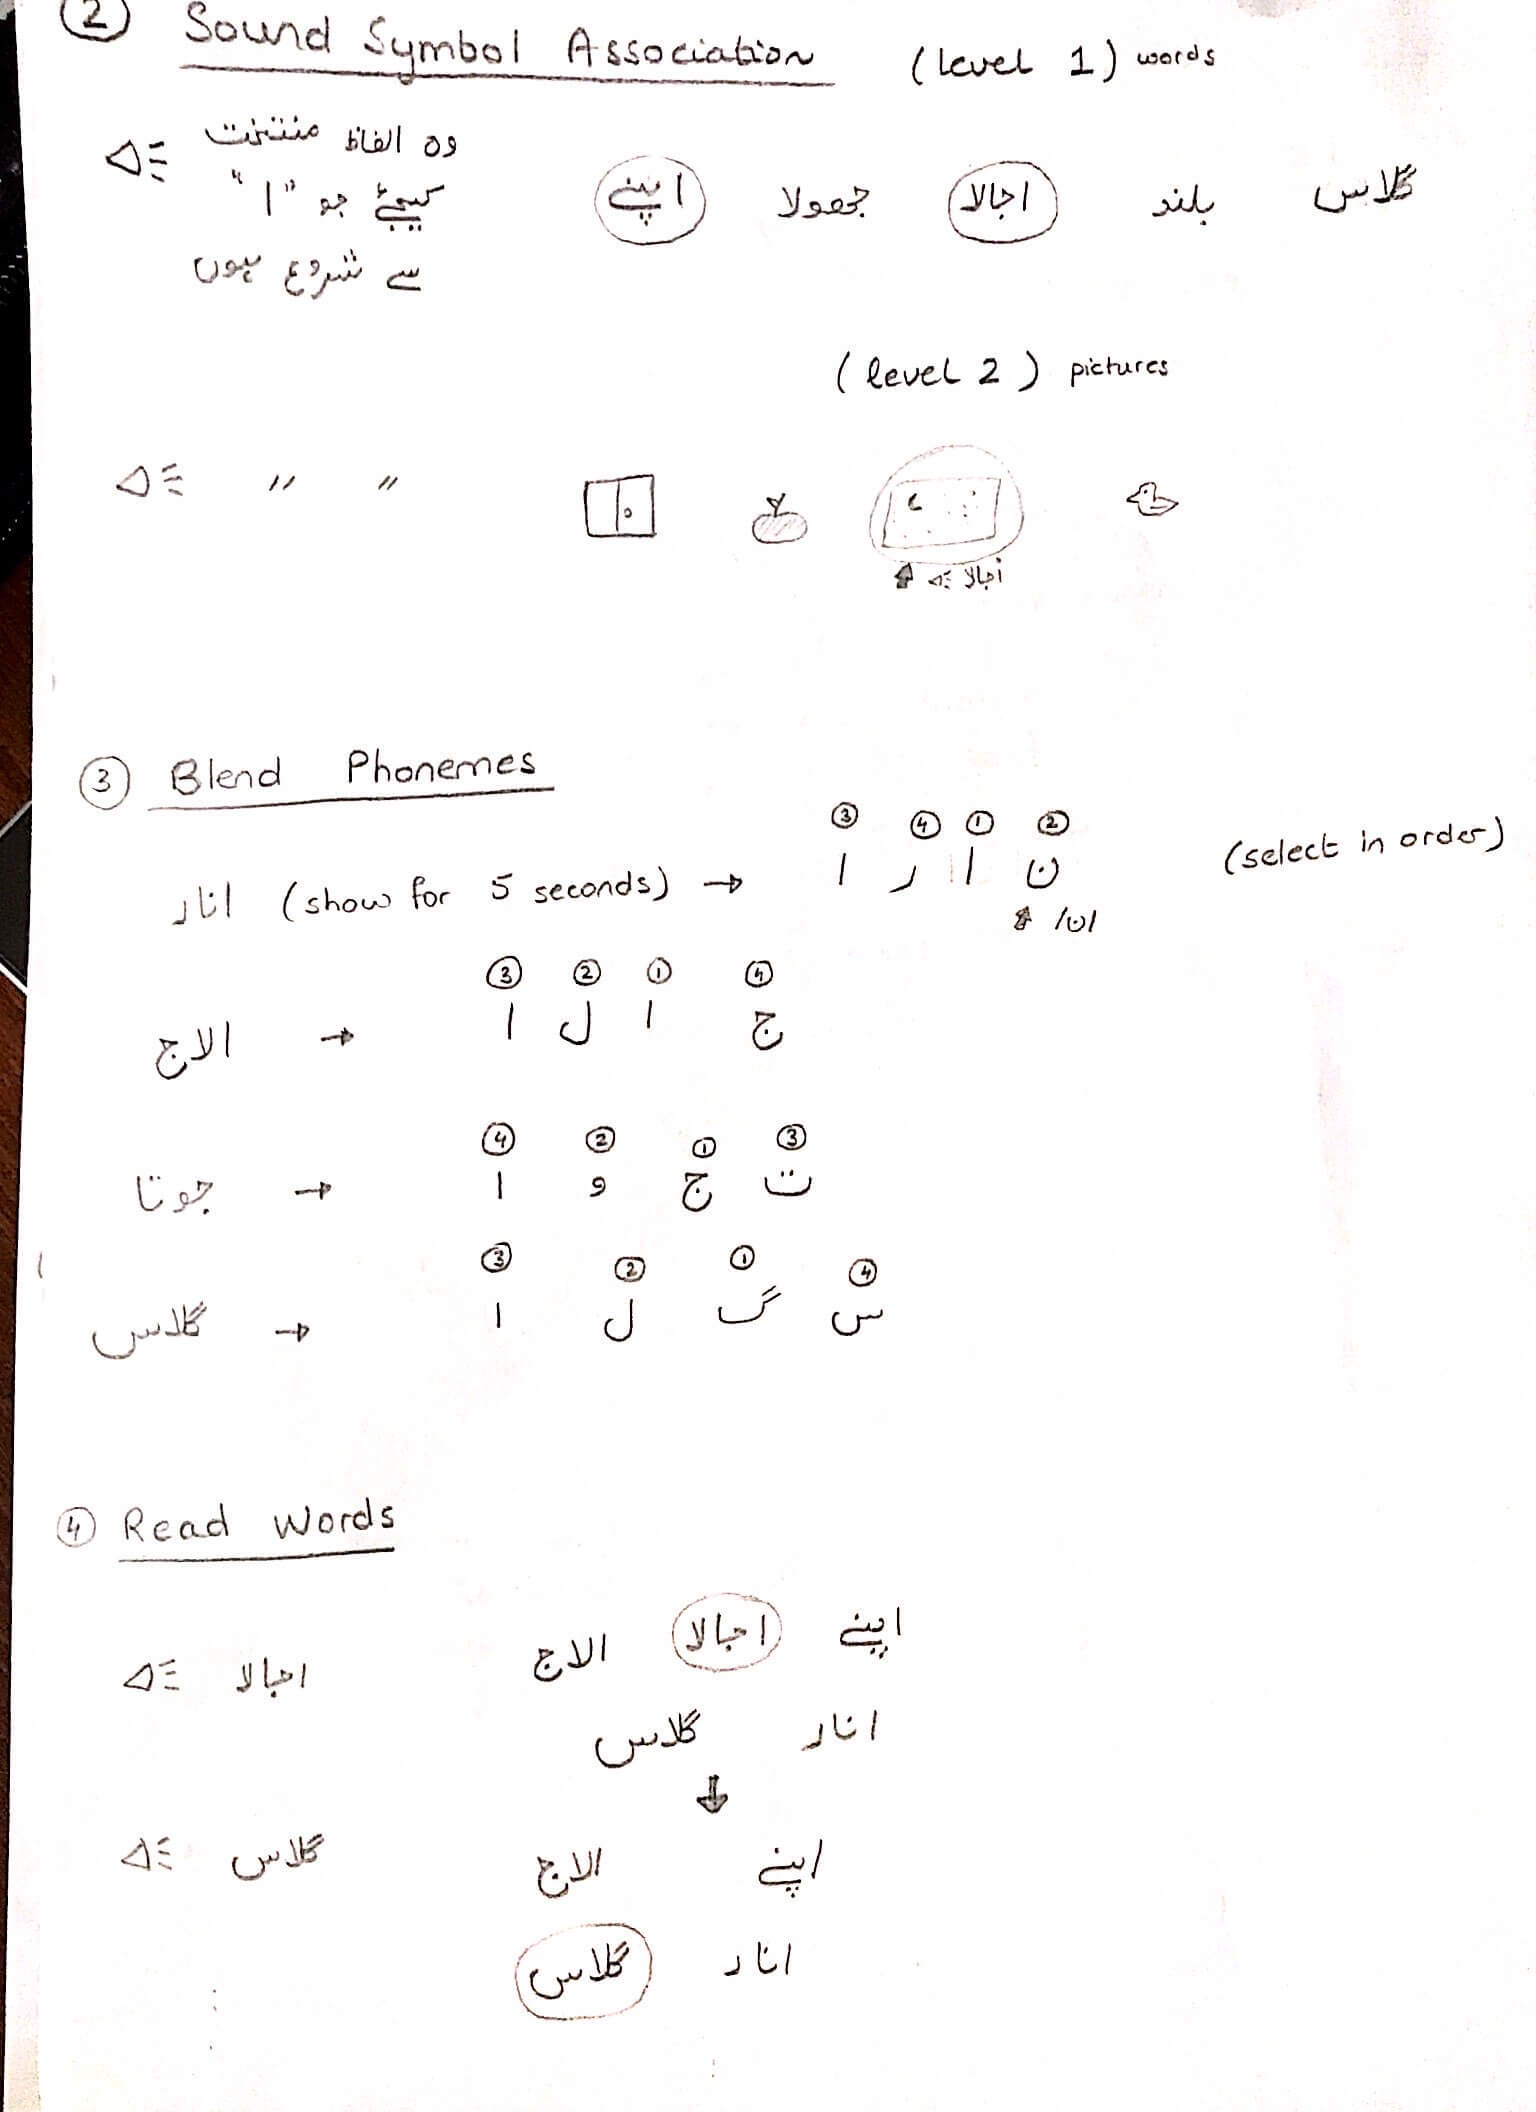 2 Sound Symbol Association (level 1) words
وہ الفاظ منتخب
کیجئے جو "ا"
سے شروع ہوں
اپنے جھولا اجالا بلند گلاس
(level 2) pictures
" "
اجالا
3 Blend Phonemes
انار (show for 5 seconds) → (select in order)
3 4 1 2
ا ر ا ن
/ن/
3 2 1 4
الاج → ا ل ا ج
4 2 1 3
جوتا → ا و ج ت
3 2 1 4
گلاس → ا ل گ س
4 Read Words
اجالا
الاج اجالا اپنے
گلاس انار
گلاس
الاج اپنے
گلاس انار